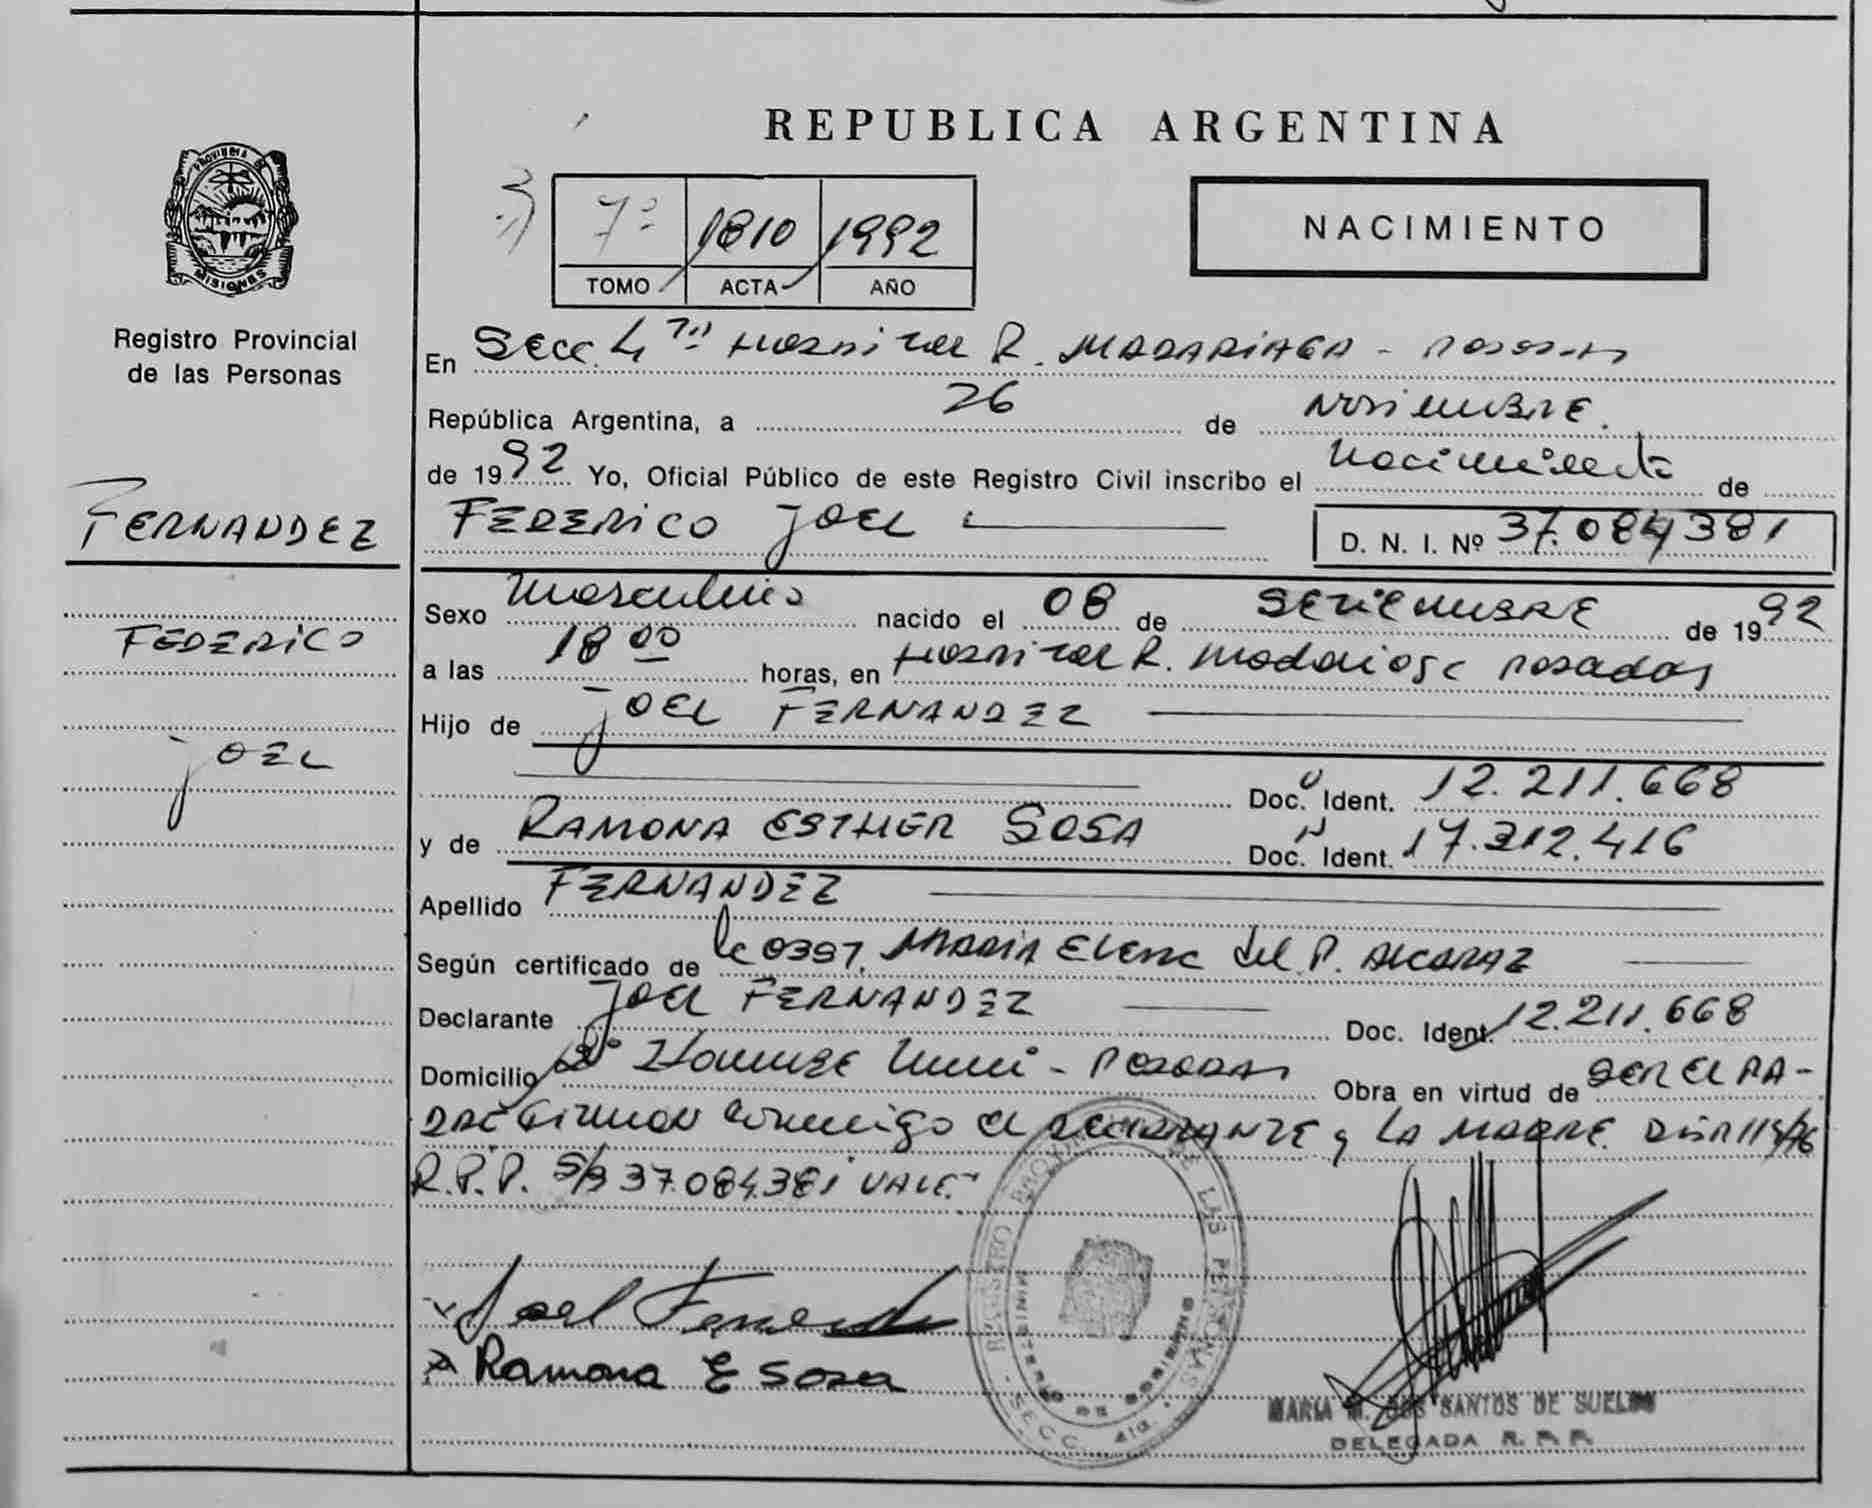 REPUBLICA ARGENTINA
PROVINCIA DE MISIONES
Registro Provincial
de las Personas
7º 1810 1992
TOMO ACTA AÑO
NACIMIENTO
En Secc. 4 Hospital R. MADARIAGA - Posadas
República Argentina, a 26 de Noviembre.
de 1992 Yo, Oficial Público de este Registro Civil inscribo el Nacimiento de
FERNANDEZ
FEDERICO JOEL
D. N. I. Nº 37.084381
Sexo Masculino nacido el 08 de SETIEMBRE de 1992
FEDERICO
a las 18 00 horas, en Hospital R. Madariaga Posadas
Hijo de JOEL FERNANDEZ
JOEL
Doc. Ident. 12.211.668
y de RAMONA ESTHER SOSA Doc. Ident. 17.312.416
Apellido FERNANDEZ
Según certificado de 0397, MARIA ELENA del P. ALCARAZ
Declarante JOEL FERNANDEZ Doc. Ident. 12.211.668
Domicilio Posadas Obra en virtud de SER EL PA-
DRE Firman conmigo el DECLARANTE y LA MADRE. 119/76
R.P.P. S/B 37.084.381 VALE.-
Joel Fernandez
Ramona E Sosa
REGISTRO PROVINCIAL DE LAS PERSONAS - SECC. 4ta.
MINISTERIO DE GOBIERNO
MARIA M. DOS SANTOS DE SUELDO
DELEGADA R. P. P.